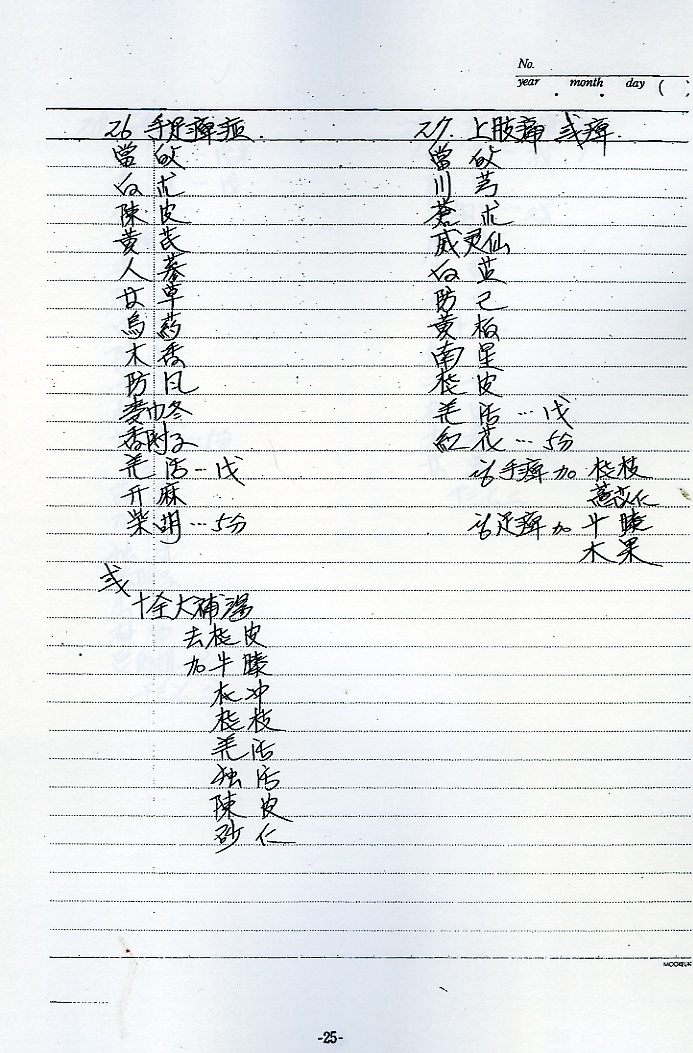 No.
year month day ( )
26 手足痺症
當 歸
白 朮
陳 皮
黃 芪
人 蔘
甘 草
烏 药
木 香
防 风
麦中冬
香附子
羌 活…戊
升 麻
柴 胡…5分
或
十全大補湯
去桂皮
加牛膝
杜 冲
桂 枝
羌 活
独 活
陳 皮
砂 仁
27. 上肢痛 或痺
當 歸
川 芎
蒼 朮
威灵仙
白 芷
防 己
黃 柏
南 星
桂 皮
羌 活…戊
紅 花…5分
治手痺加 桂枝
薏苡仁
治足痺加 牛膝
木果
-25-